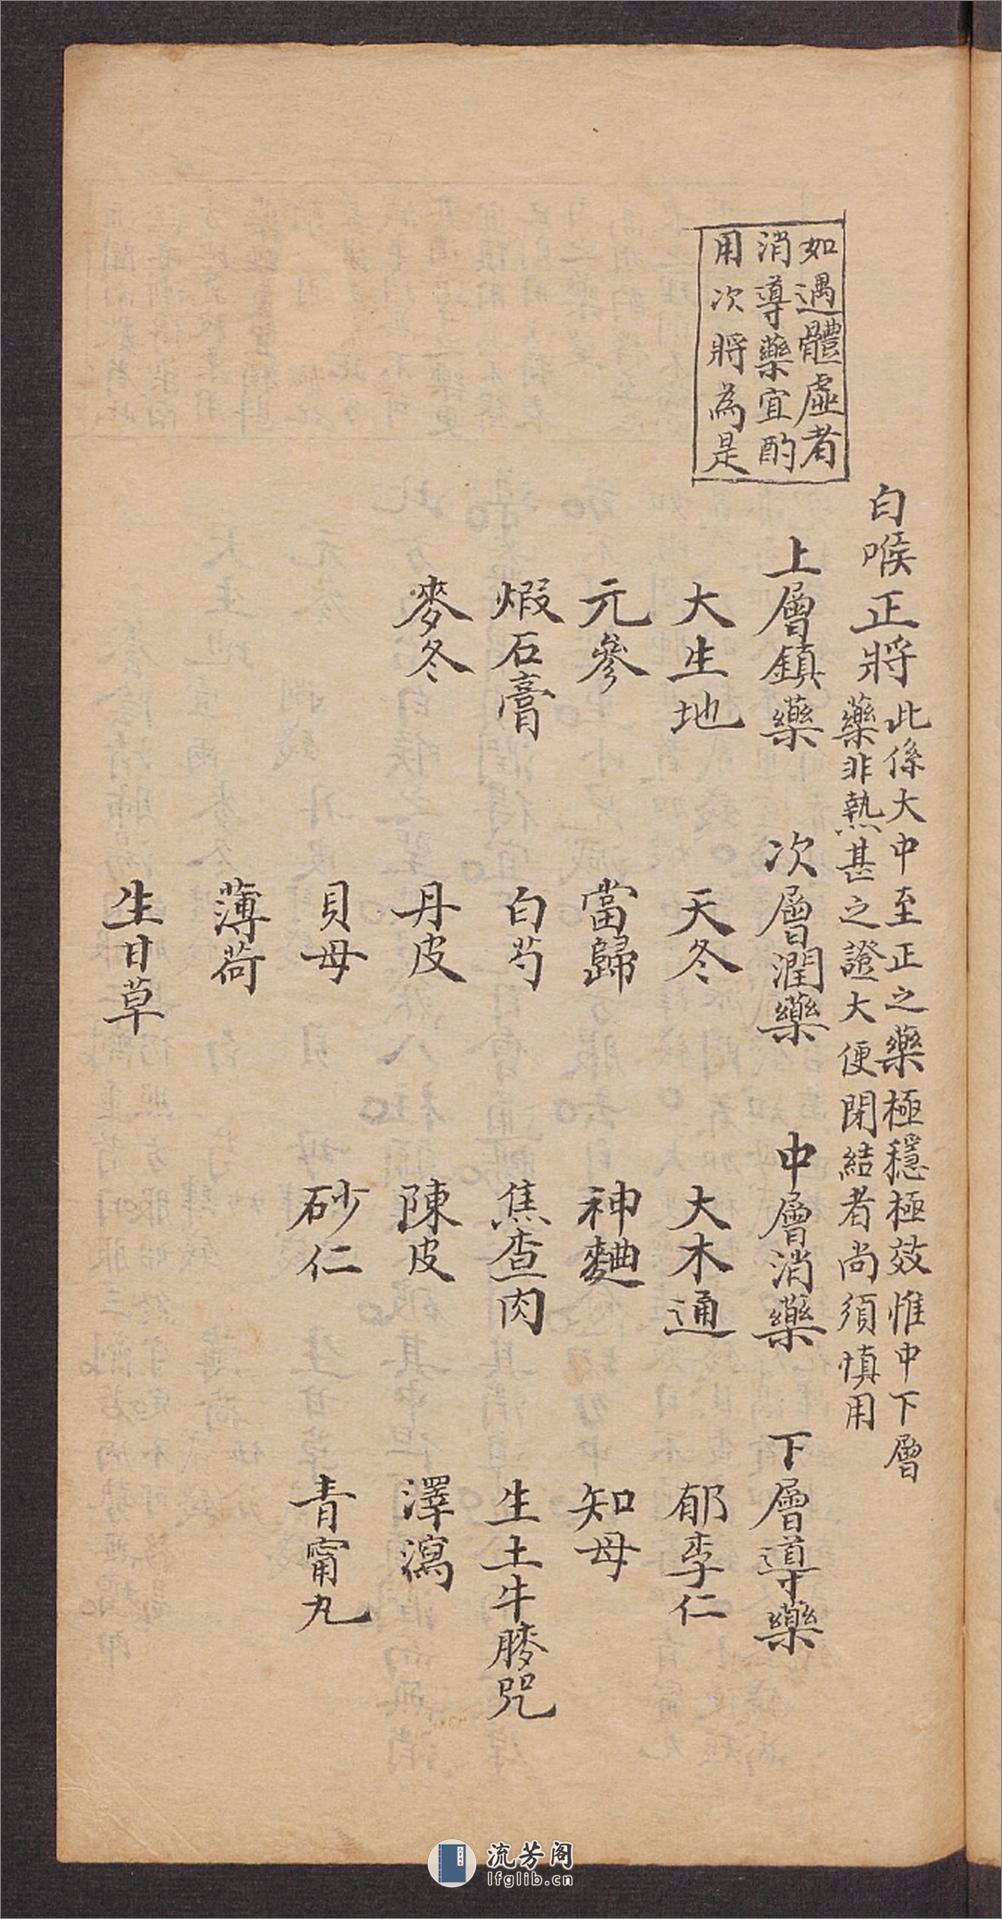 如遇體虛者
消導藥宜酌
用次將為是
白喉正將
此係大中至正之藥極穩極效惟中下層
藥非熱甚之證大便閉結者尚須慎用
上層鎮藥 次層潤藥 中層消藥 下層導藥
大生地 天冬 大木通 郁李仁
元參 當歸 神麯 知母
煆石膏 白芍 焦查肉 生土牛膝咒
麥冬 丹皮 陳皮 澤瀉
貝母 砂仁 青甯丸
薄荷
生甘草
流芳阁
lfglib.cn